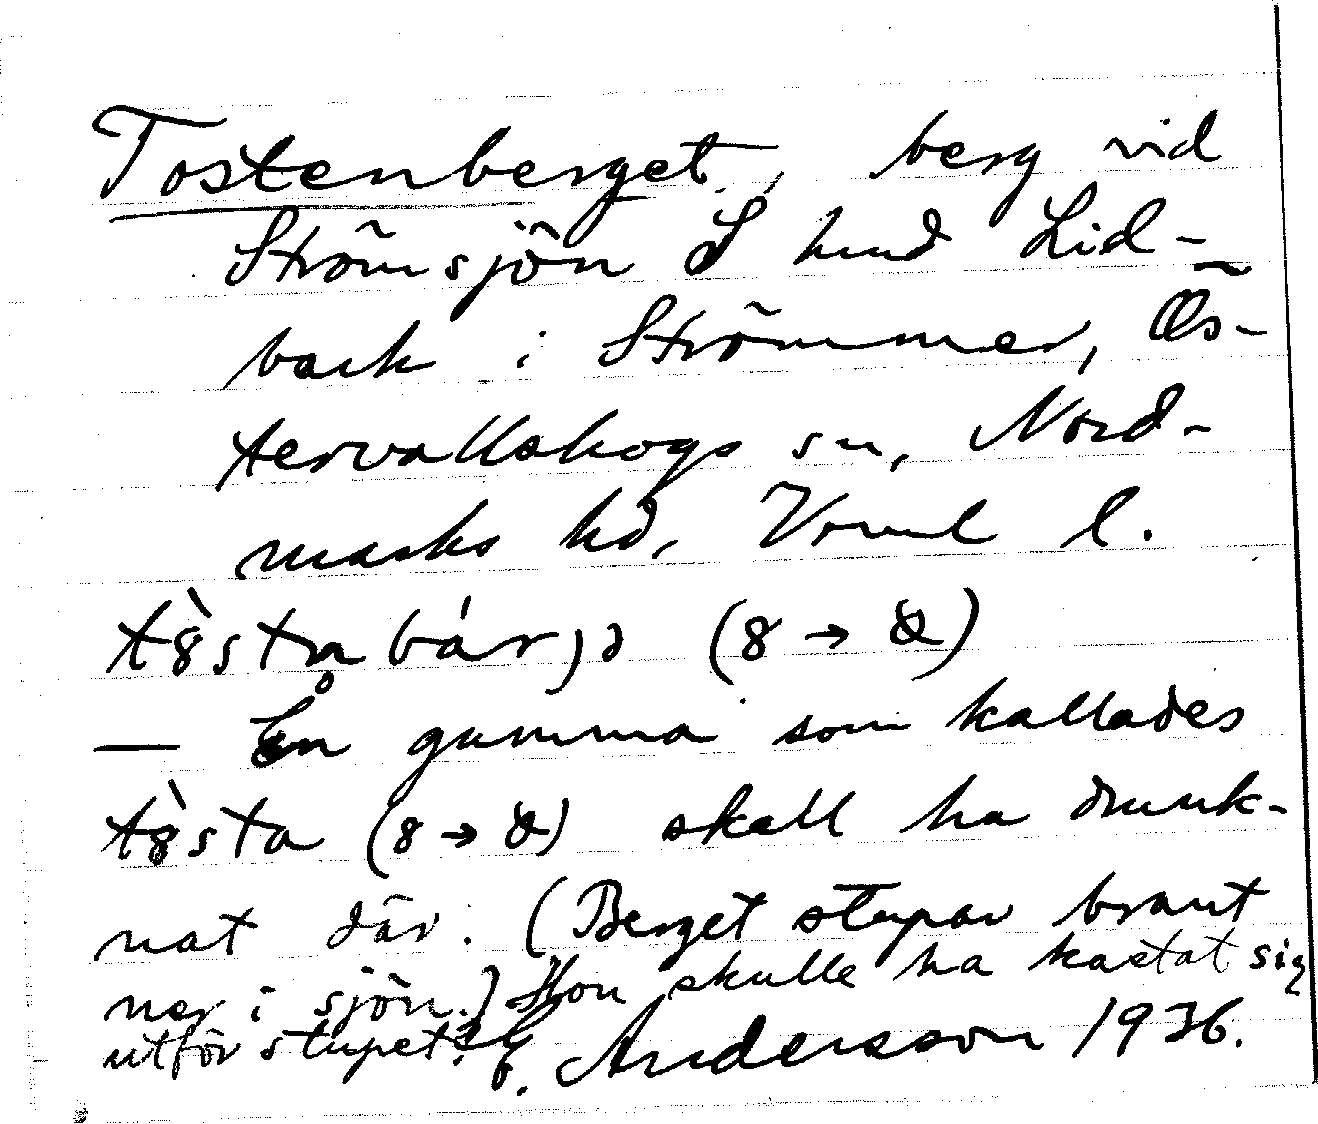 Tostenberget, berg vid
Strömsjön S hmd Lid-
back i Strömmer, Ös-
tervallskogs sn, Nord-
marks hd, Vrml l.
— En gumma som kallades
skall ha drunk-
nat där. (Berget stupar brant
ner i sjön.) Hon skulle ha kastat sig
utför stupet. E. Andersson 1936.